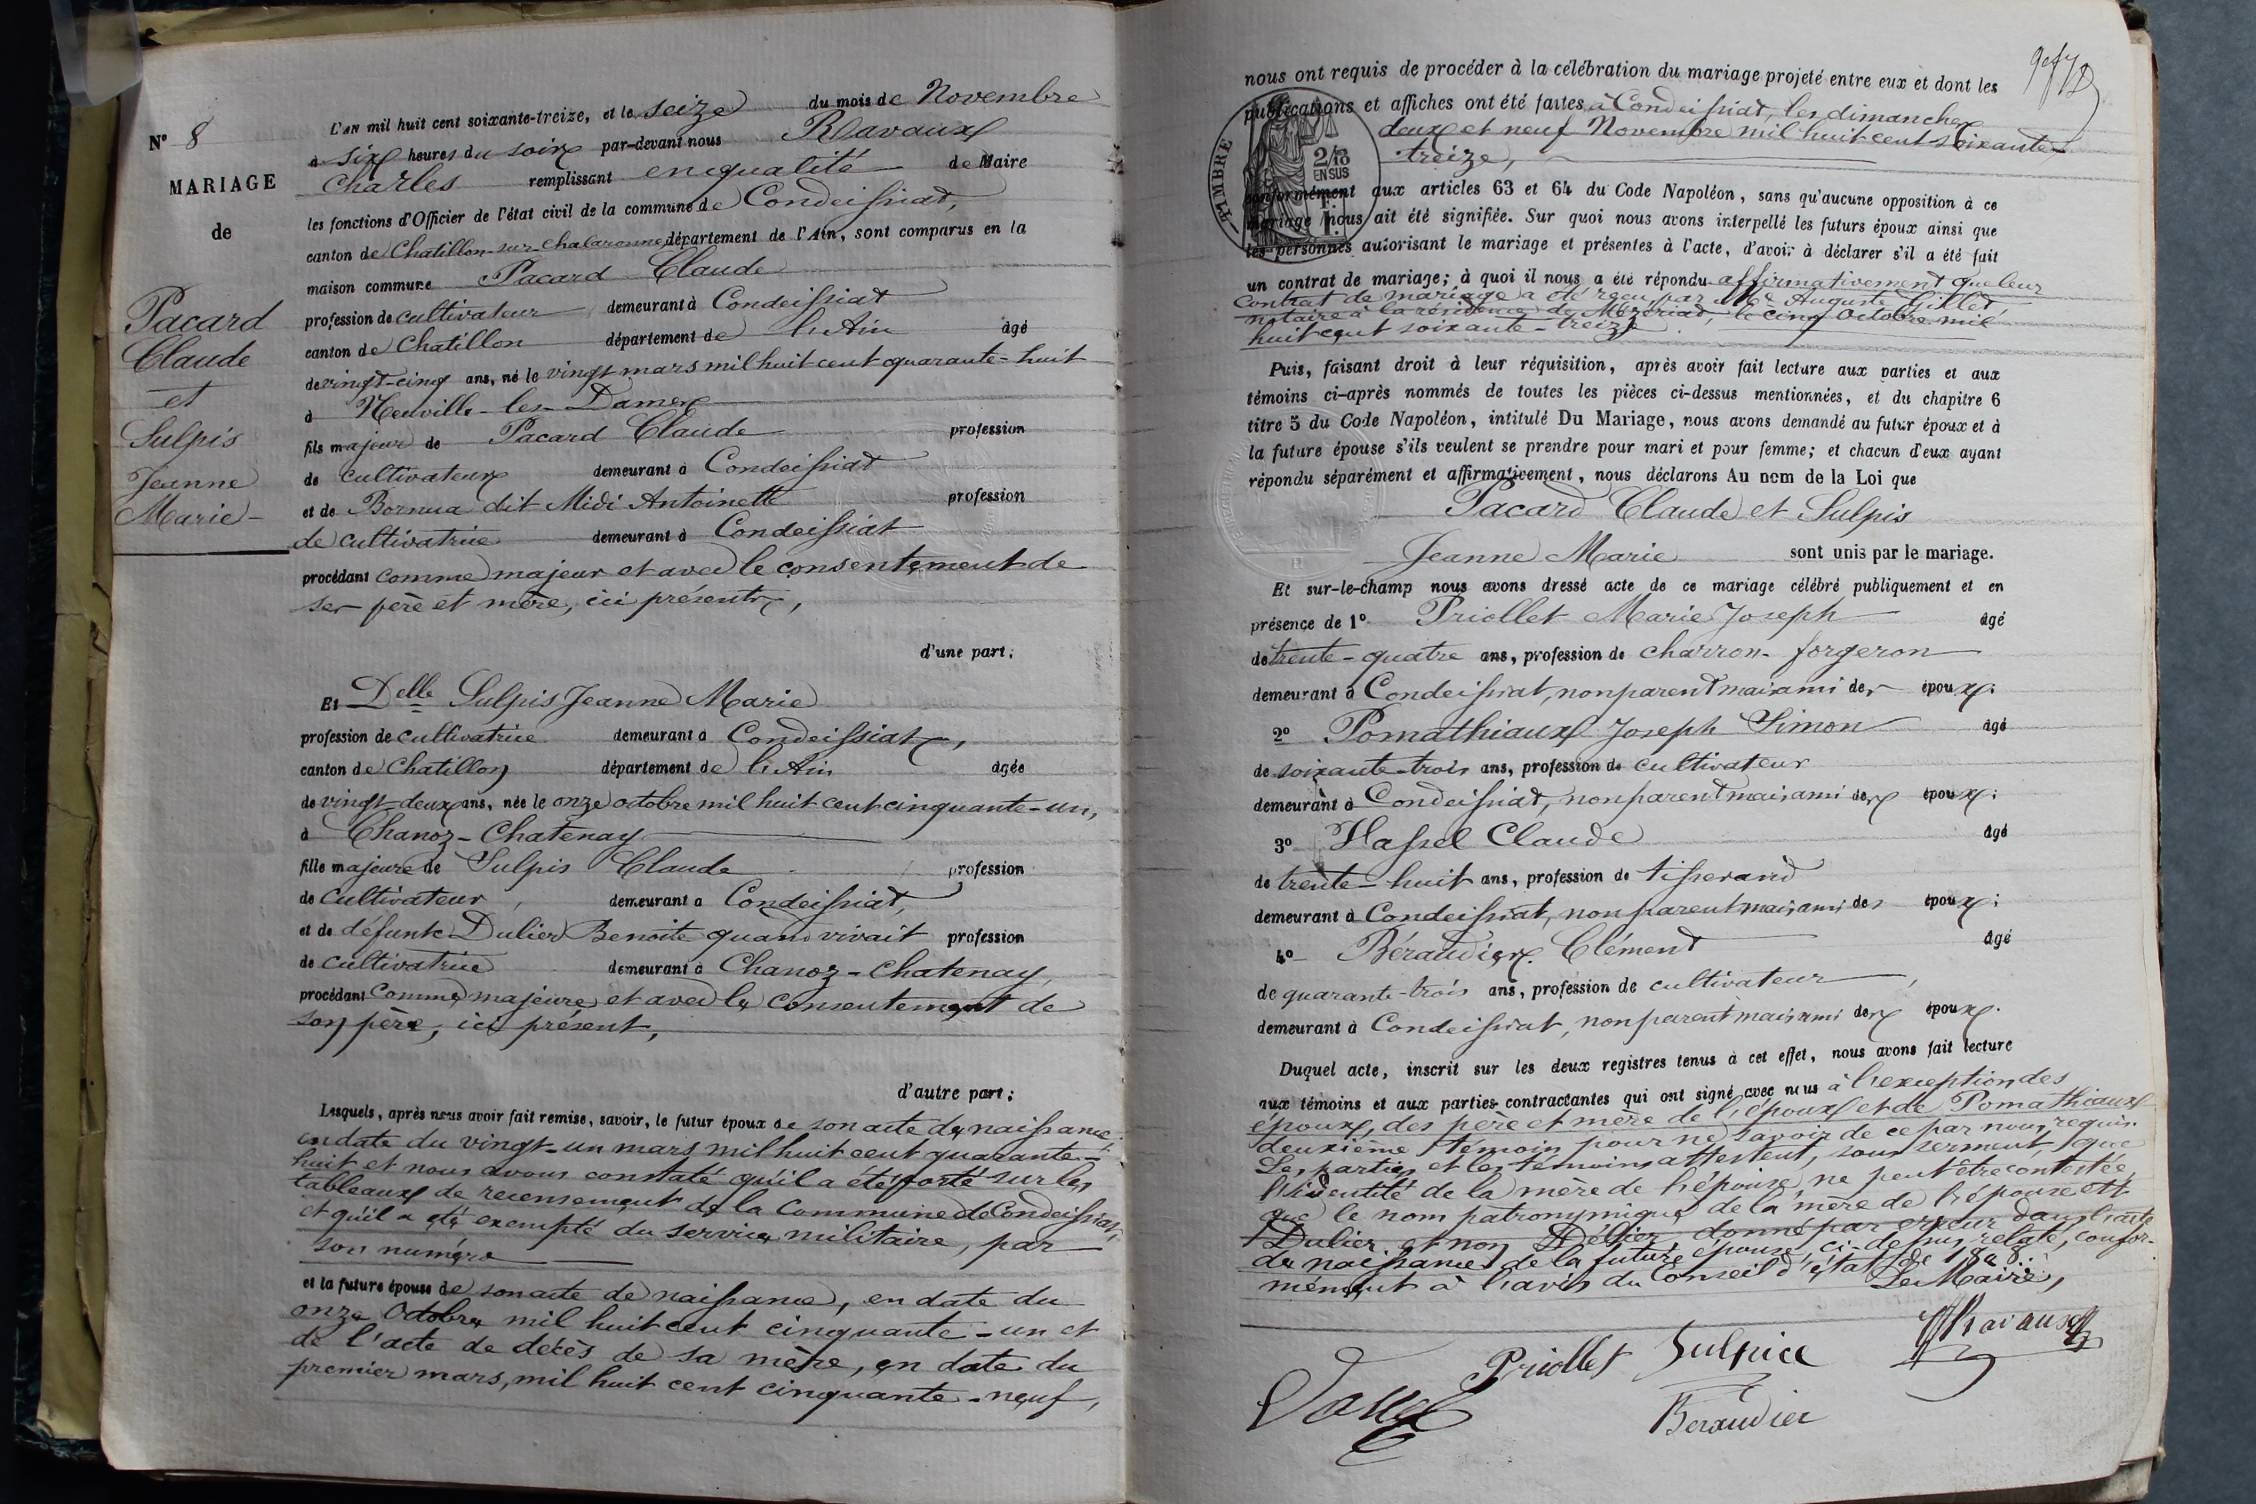 N° 8
MARIAGE
de
Pacard
Claude
et
Sulpis
Jeanne
Marie
L'an mil huit cent soixante-treize, et le seize du mois de Novembre
à six heures du soir par-devant nous Ravaux
Charles remplissant en qualité de Maire
les fonctions d'Officier de l'état civil de la commune de Condeissiat,
canton de Chatillon-sur-Chalaronne, département de l'Ain, sont comparus en la
maison commune Pacard Claude
profession de cultivateur demeurant à Condeissiat
canton de Chatillon département de l'Ain âgé
de vingt-cinq ans, né le vingt mars mil huit cent quarante-huit
à Neuville-les-Dames
fils majeur de Pacard Claude profession
de cultivateur demeurant à Condeissiat
et de Bornua dit Midi Antoinette profession
de cultivatrice demeurant à Condeissiat
procédant comme majeur et avec le consentement de
ses père et mère, ici présents,
d'une part;
Et Delle Sulpis Jeanne Marie
profession de cultivatrice demeurant à Condeissiat,
canton de Chatillon département de l'Ain âgée
de vingt-deux ans, née le onze octobre mil huit cent cinquante-un,
à Chanoz-Chatenay
fille majeure de Sulpis Claude profession
de cultivateur, demeurant à Condeissiat,
et de défunte Dulier Benoite quand vivait profession
de cultivatrice demeurant à Chanoz-Chatenay,
procédant comme majeure et avec le consentement de
son père, ici présent,
d'autre part;
Lesquels, après nous avoir fait remise, savoir, le futur époux de son acte de naissance
en date du vingt-un mars mil huit cent quarante-
huit et nous avons constaté qu'il a été porté sur les
tableaux de recensement de la Commune de Condeissiat,
et qu'il a été exempté du service militaire, par
son numéro
et la future épouse de son acte de naissance, en date du
onze Octobre mil huit cent cinquante-un et
de l'acte de décès de sa mère, en date du
premier mars, mil huit cent cinquante-neuf,
nous ont requis de procéder à la célébration du mariage projeté entre eux et dont les
publications et affiches ont été faites à Condeissiat, les dimanches
deux et neuf Novembre mil huit cent soixante-
treize,
TIMBRE
2/10
EN SUS
conformément aux articles 63 et 64 du Code Napoléon, sans qu'aucune opposition à ce
mariage nous ait été signifiée. Sur quoi nous avons interpellé les futurs époux ainsi que
les personnes autorisant le mariage et présentes à l'acte, d'avoir à déclarer s'il a été fait
un contrat de mariage; à quoi il nous a été répondu affirmativement que leur
contrat de mariage a été reçu par Me Auguste Gillet,
notaire à la résidence de Mézériat, le cinq Octobre mil
huit cent soixante-treize.
Puis, faisant droit à leur réquisition, après avoir fait lecture aux parties et aux
témoins ci-après nommés de toutes les pièces ci-dessus mentionnées, et du chapitre 6
titre 5 du Code Napoléon, intitulé Du Mariage, nous avons demandé au futur époux et à
la future épouse s'ils veulent se prendre pour mari et pour femme; et chacun d'eux ayant
répondu séparément et affirmativement, nous déclarons Au nom de la Loi que
Pacard Claude et Sulpis
Jeanne Marie sont unis par le mariage.
Et sur-le-champ nous avons dressé acte de ce mariage célébré publiquement et en
présence de 1° Priollet Marie Joseph âgé
de trente-quatre ans, profession de charron-forgeron
demeurant à Condeissiat, non parent mais ami des époux;
2° Pomathiaux Joseph Simon âgé
de soixante-trois ans, profession de cultivateur
demeurant à Condeissiat, non parent mais ami des époux;
3° Hassel Claude âgé
de trente-huit ans, profession de tisserand
demeurant à Condeissiat, non parent mais ami des époux;
4° Béraudier Clément âgé
de quarante-trois ans, profession de cultivateur,
demeurant à Condeissiat, non parent mais ami des époux.
Duquel acte, inscrit sur les deux registres tenus à cet effet, nous avons fait lecture
aux témoins et aux parties contractantes qui ont signé avec nous à l'exception des
époux, des père et mère de l'époux et de Pomathiaux
deuxième témoin pour ne savoir de ce par nous requis.
Les parties et les témoins attestent, sous serment, que
l'identité de la mère de l'épouse, ne peut être contestée,
que le nom patronymique de la mère de l'épouse est
Dulier et non Délier donné par erreur dans l'acte
de naissance de la future épouse, ci-dessus relaté, confor-
mément à l'avis du Conseil d'état de 1808.
Le Maire,
Ravaux
Priollet Sulpice
Béraudier